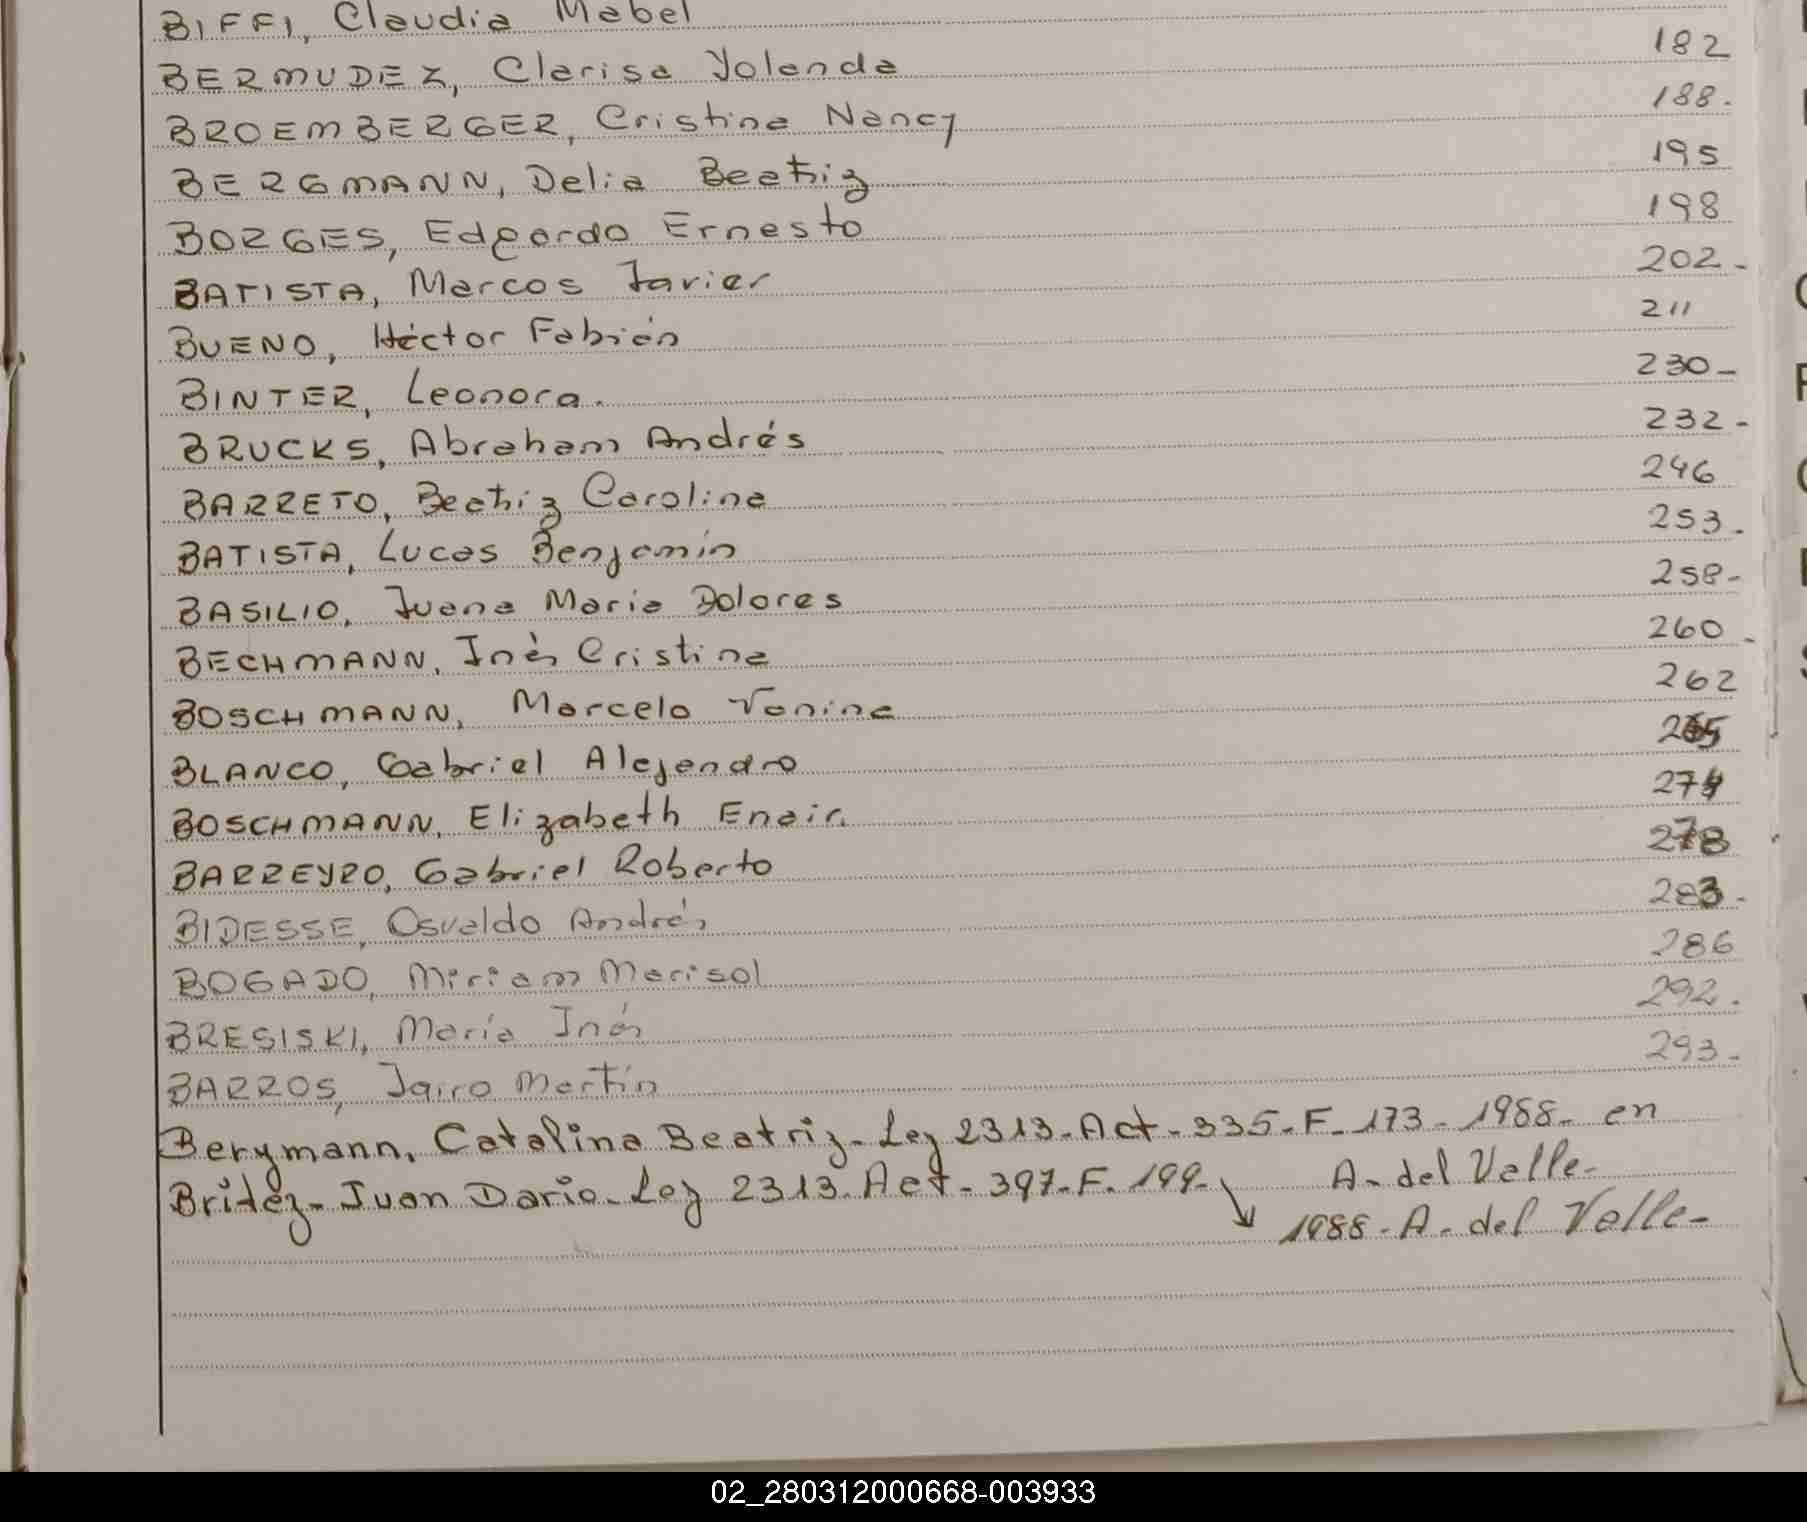 BIFFI, Claudia Mabel
BERMUDEZ, Clarisa Yolanda 182
BROEMBERGER, Cristina Nancy 188.
BERGMANN, Delia Beatriz 195
BORGES, Edgardo Ernesto 198
BATISTA, Marcos Javier 202-
BUENO, Héctor Fabián 211
BINTER, Leonora. 230-
BRUCKS, Abraham Andrés 232-
BARRETO, Beatriz Carolina 246
BATISTA, Lucas Benjamín 253.
BASILIO, Juana Maria Dolores 258-
BECHMANN, Inés Cristina 260-
BOSCHMANN, Marcelo Vanina 262
BLANCO, Gabriel Alejandro 265
BOSCHMANN, Elizabeth Enair. 274
BARREYRO, Gabriel Roberto 278
BIDESSE, Osvaldo Andrés 283-
BOGADO, Miriam Marisol 286
BRESISKI, María Inés 292.
BARROS, Jairo Martín 293-
Bergmann, Catalina Beatriz- Ley 2313- Act- 335- F- 173- 1988- en
A- del Valle-
Britez- Juan Dario- Ley 2313- Act- 397- F. 199-
1988- A- del Valle-
02_280312000668-003933